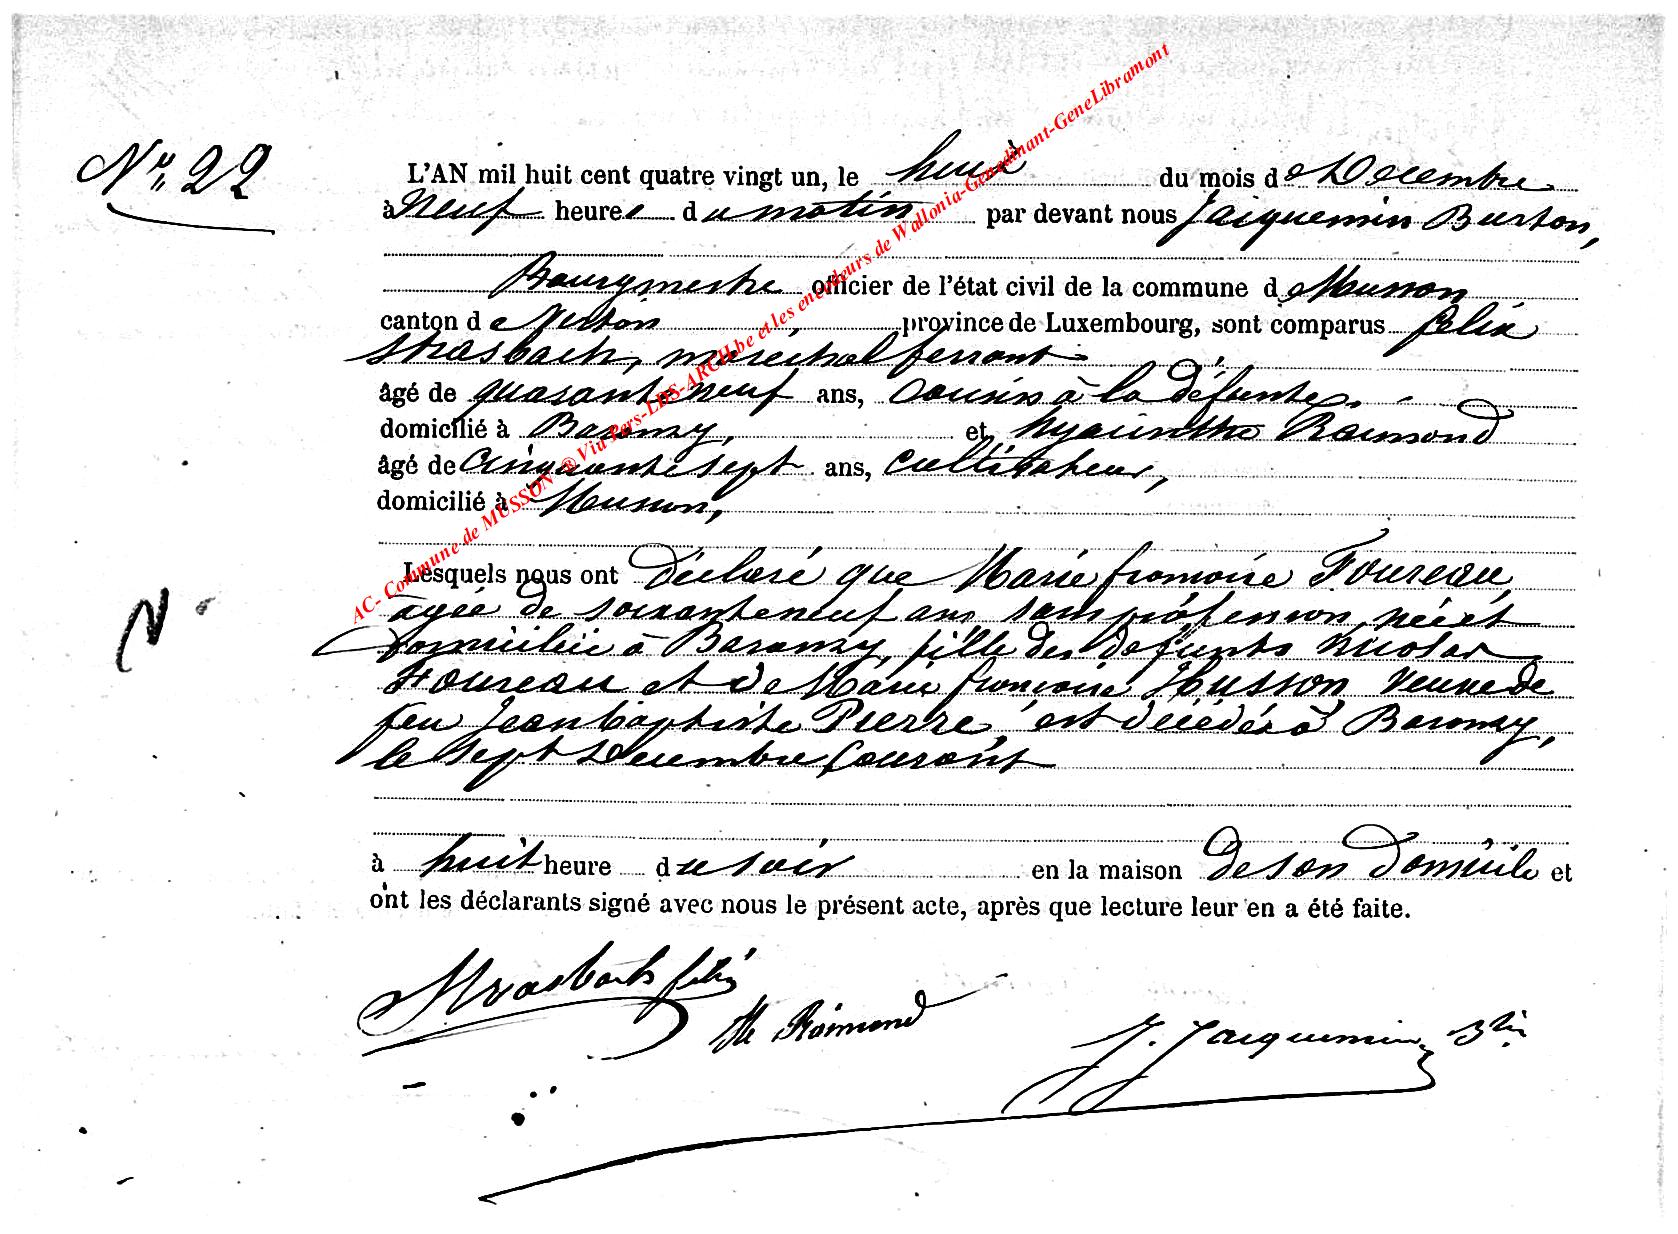 N° 22
L'AN mil huit cent quatre vingt un, le huit du mois de Decembre
à Neuf heures du matin par devant nous Jacquemin Burton,
Bourgmestre officier de l'état civil de la commune de Musson
canton de Virton province de Luxembourg, sont comparus felix
Strasbach, maréchal ferrant
âgé de quarante neuf ans, cousin à la défunte.
domicilié à Baranzy, et hyacinthe Raimond
âgé de Cinquante sept ans, cultivateur,
domicilié à Musson,
Lesquels nous ont déclaré que Marie françoise Foureau,
agée de soixante neuf ans sans profession, née et
domiciliée à Baranzy, fille des défunts Nicolas
Foureau et de Marie françoise Husson, Veuve de
feu Jean baptiste Pierre, est décédée à Baranzy,
le sept Decembre Courant
à huit heure du soir en la maison de son domicile et
ont les déclarants signé avec nous le présent acte, après que lecture leur en a été faite.
Strasbach felix
He Raimond
J. Jacquemin Btin
N
AC- Commune de MUSSON ® Via Pers-LDS-ARCH.be et les encodeurs de Wallonia-Genedinant-GeneLibramont